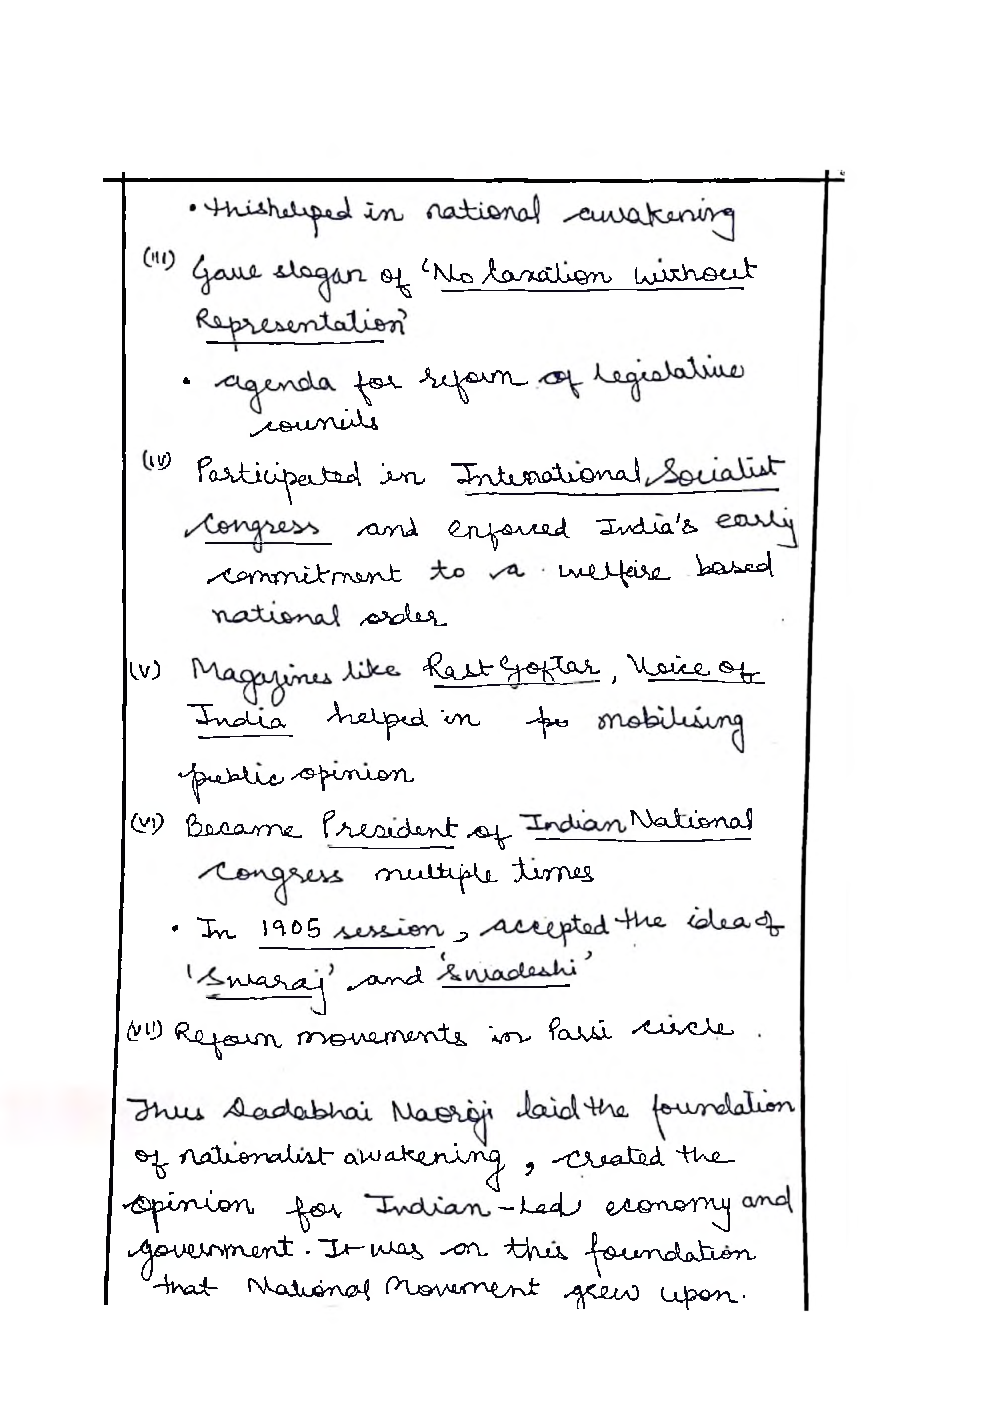 • this helped in national awakening
(iii) Gave slogan of 'No taxation without
Representation'
• agenda for reform of legislative
councils
(iv) Participated in International Socialist
Congress and enforced India's early
commitment to a welfare based
national order
(v) Magazines like Rast Goftar, Voice of
India helped in mobilising
public opinion
(vi) Became President of Indian National
Congress multiple times
• In 1905 session, accepted the idea of
'Swaraj' and 'Swadeshi'
(vii) Reform movements in Parsi circle.
Thus Dadabhai Naoroji laid the foundation
of nationalist awakening, created the
opinion for Indian-Led economy and
government. It was on this foundation
that National Movement grew upon.